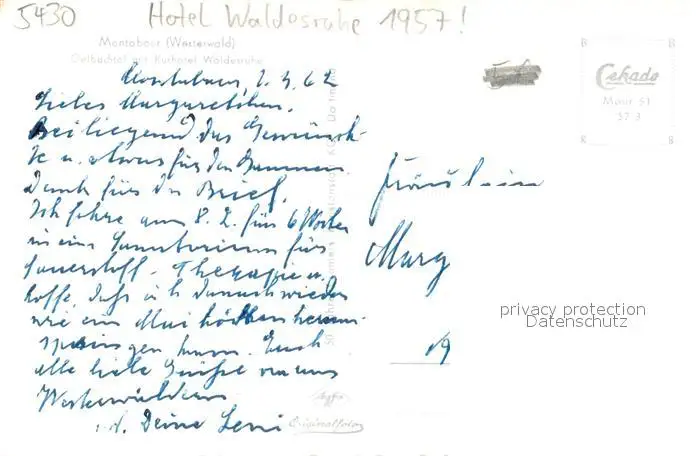 5430 Hotel Waldesruhe 1957!
Montabaur (Westerwald)
Gelbachtal mit Kurhotel Waldesruhe
Montabaur, 2.4.62
Liebes Margaretchen.
Beiliegend das Gewünsch-
te u. etwas für den Gaumen.
Dank für den Brief.
Ich fahre am 8. 2. für 6 Wochen
in ein Sanatorium für
Sauerstoff-Therapie u.
hoffe, daß ich danach wieder
wie ein Mai herum-
springen kann. Euch
alle liebe Grüße von uns
Westerwäldern
Deine Leni
Cekade
Motor 51
57 3
Fräulein
Marg
19
privacy protection
Datenschutz
Agfa
Originalfoto